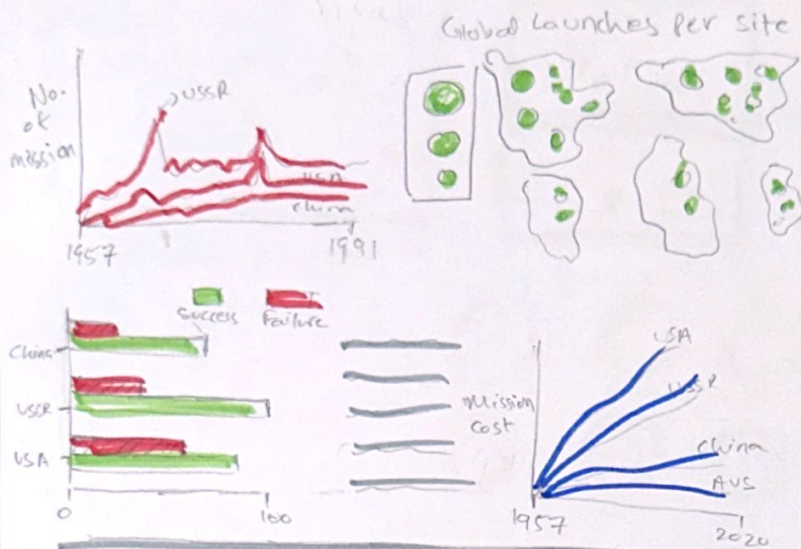 Global Launches per site
No.
of
mission
USSR
USA
China
1957
1991
Success
Failure
China
USSR
USA
0
100
Mission
cost
USA
USSR
China
AUS
1957
2020